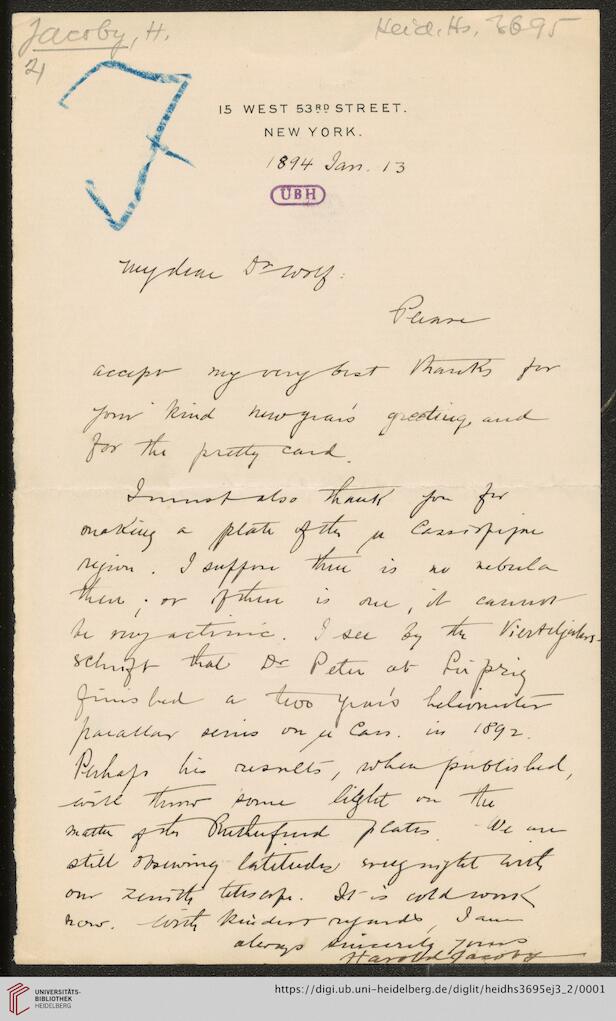 Jacoby, H.
Heid. Hs. 3695
2)
F
15 WEST 53RD STREET.
NEW YORK.
1894 Jan. 13
ÜBH
My dear Dr Wolf:
Please
accept my very best thanks for
your kind new year's greeting and
for the pretty card.
I must also thank you for
making a plate of the μ Cassiopejae
region. I suppose there is no nebula
there; or if there is one, it cannot
be very actinic. I see by the Vierteljahrs-
schrift that Dr Peter at Leipzig
finished a two year's heliometer
parallax series on μ Cass. in 1892.
Perhaps his results, when published,
will throw some light on the
matter of the Rutherfurd plates. We are
still observing latitudes every night with
our zenith telescope. It is cold work
now. With kindest regards, I am
always sincerely yours
Harold Jacoby
UNIVERSITÄTS-
BIBLIOTHEK
HEIDELBERG
https://digi.ub.uni-heidelberg.de/diglit/heidhs3695ej3_2/0001